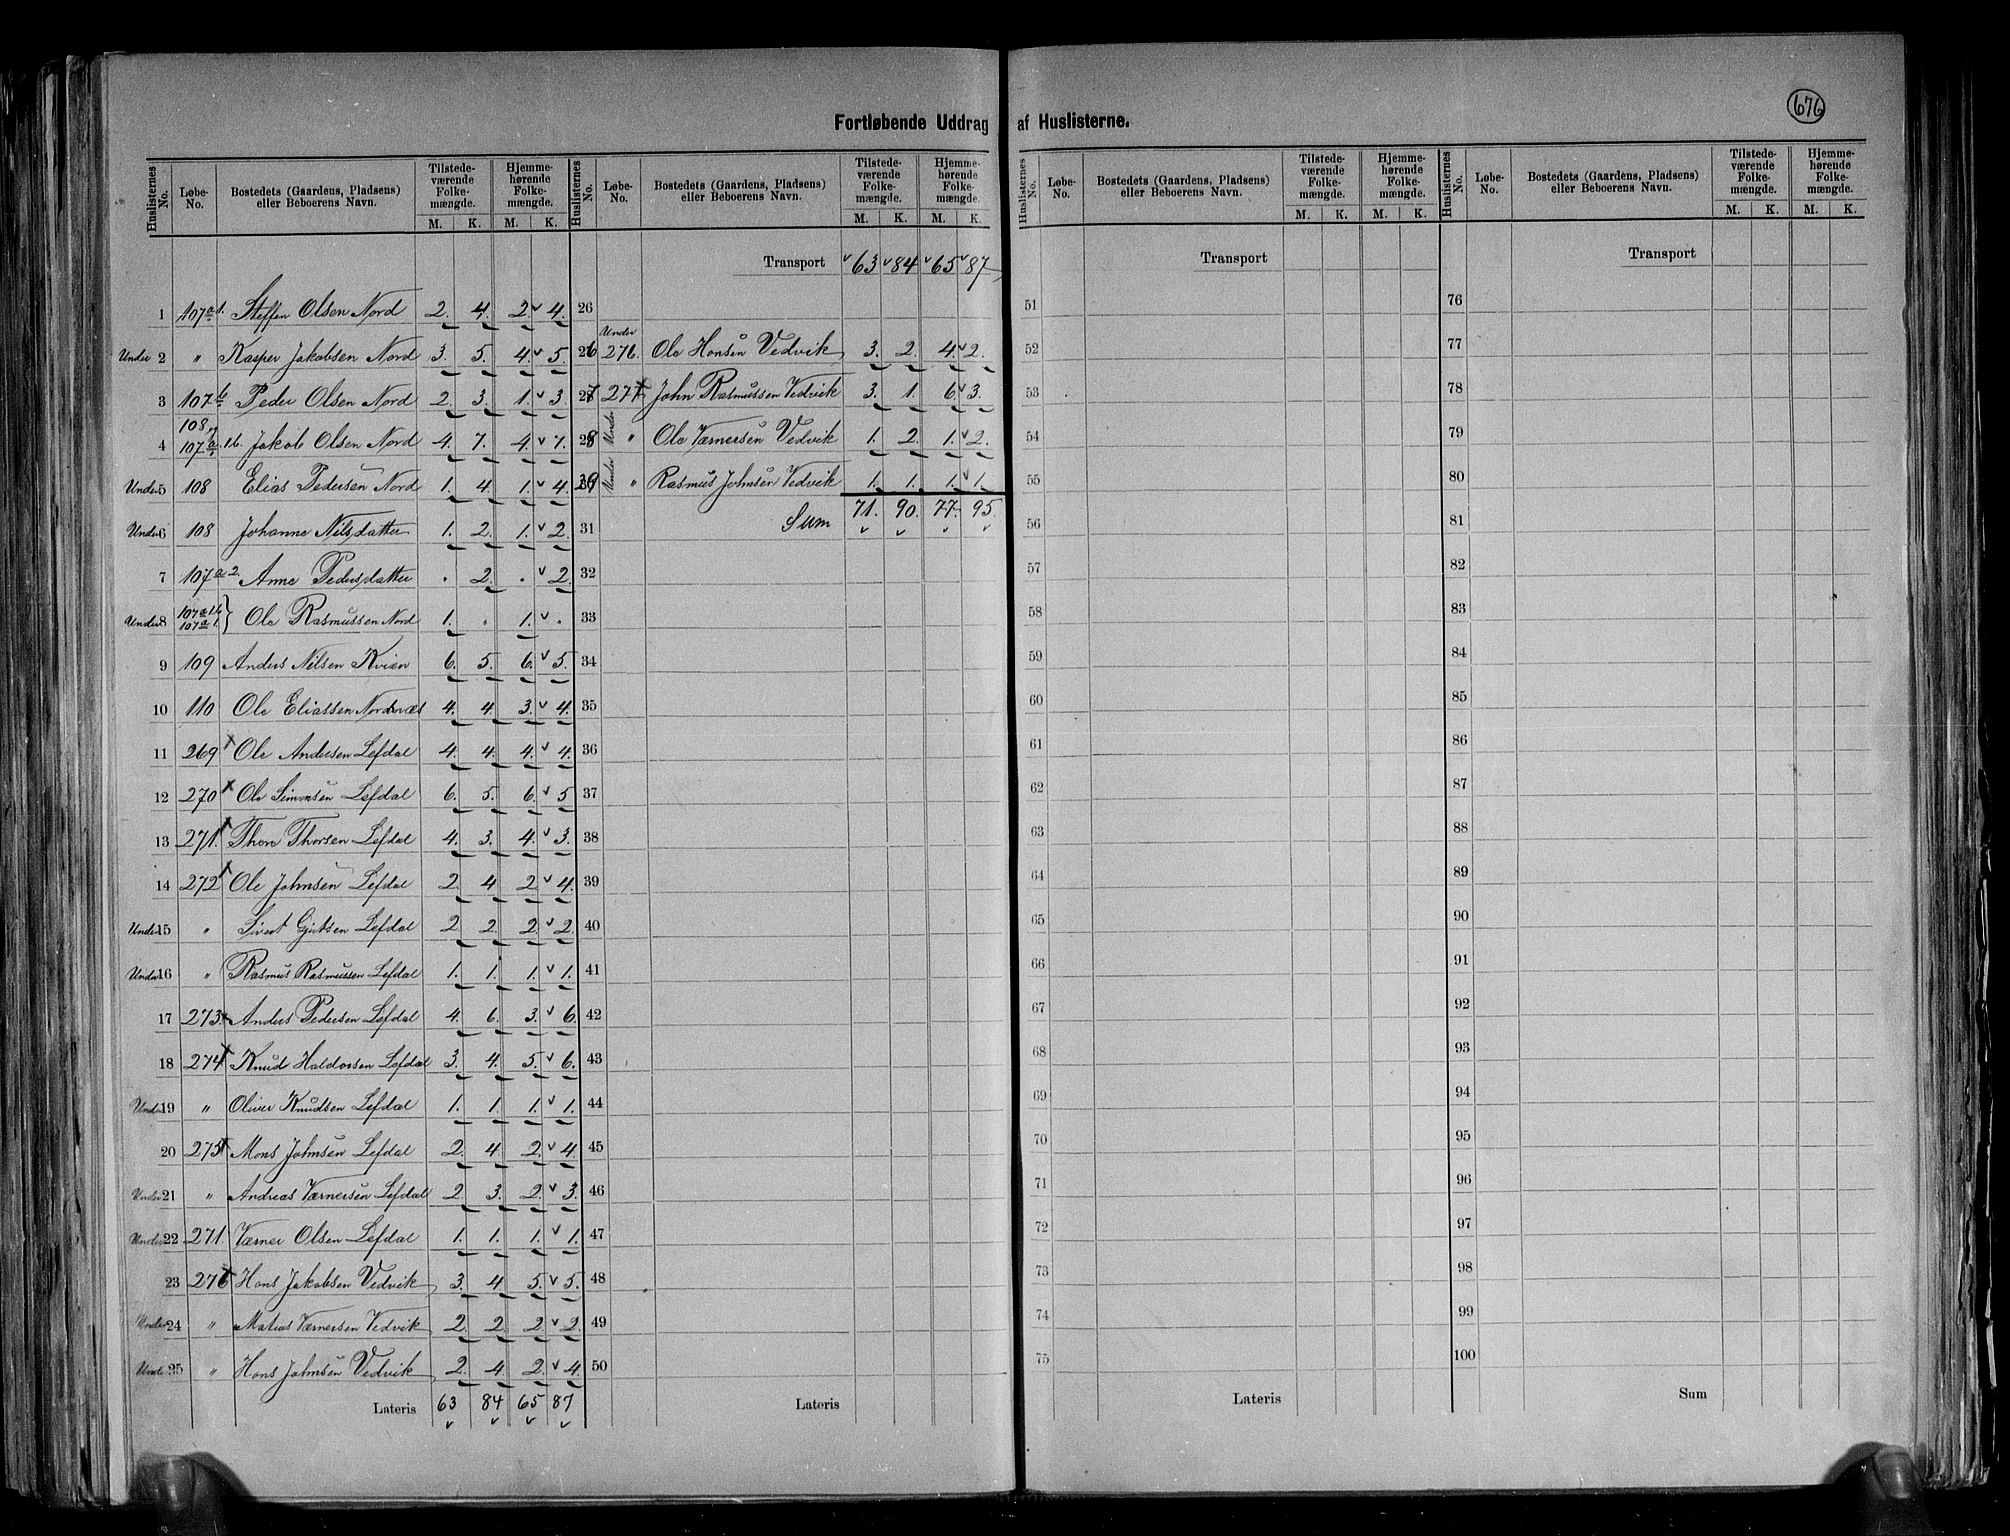 676
Fortløbende Uddrag af Huslisterne.
Huslisternes No. Løbe-No. Bostedets (Gaardens, Pladsens) eller Beboerens Navn. Tilstede-værende Folke-mængde. M. K. Hjemme-hørende Folke-mængde. M. K.
1 107a1. Steffen Olsen Nord 2. 4. 2 4.
Under 2 " Kasper Jakobsen Nord 3. 5. 4. 5.
3 107b Peder Olsen Nord 2. 3. 1. 3.
108 og
4 107a.1b. Jakob Olsen Nord 4. 7. 4. 7.
Under 5 108 Elias Pedersen Nord 1. 4. 1. 4.
Under 6 108 Johanne Nilsdatter 1. 2. 1. 2.
7 107a2. Anne Pedersdatter . 2. . 2.
Under 8 107a1b. 107a1. } Ole Rasmussen Nord 1. . 1. .
9 109 Anders Nilsen Kvien 6. 5. 6. 5.
10 110 Ole Eliassen Nordnæs 4. 4. 3. 4.
11 269 Ole Andersen Lefdal 4. 4. 4. 4.
12 270 Ole Simonsen Lefdal 6. 5. 6. 5
13 271. Thore Thorsen Lefdal 4. 3. 4. 3.
14 272 Ole Johnsen Lefdal 2. 4 2 4.
Under 15 " Sivert Gjertsen Lefdal 2. 2. 2. 2.
Under 16 " Rasmus Rasmussen Lefdal 1. 1. 1. 1.
17 273. Anders Pedersen Lefdal 4. 6. 3. 6.
18 274 Knud Haldorsen Lefdal 3. 4. 5. 6.
Under 19 " Oliver Knudsen Lefdal 1. 1. 1. 1.
20 275 Mons Johnsen Lefdal 2. 4. 2. 4.
Under 21 " Andreas Værnersen Lefdal 2. 3. 2. 3.
Under 22 271. Værner Olsen Lefdal 1. 1. 1. 1.
23 276 Hans Jakobsen Vedvik 3. 4. 5. 5.
Under 24 " Matias Værnersen Vedvik 2. 2. 2. 2.
Unde 25 " Hans Johnsen Vedvik 2. 4. 2. 4.
Lateris 63 84 65 87
Huslisternes No. Løbe-No. Bostedets (Gaardens, Pladsens) eller Beboerens Navn. Tilstede-værende Folke-mængde. M. K. Hjemme-hørende Folke-mængde. M. K.
Transport 63 84 65 87
26
Under
26 276. Ole Hansen Vedvik 3. 2. 4. 2.
27 277 John Rasmussen Vedvik 3. 1. 6. 3.
28 Under " Ole Værnersen Vedvik 1. 2. 1. 2.
29 Under " Rasmus Johnsen Vedvik 1. 1. 1. 1.
31 Sum 71. 90. 77. 95.
32
33
34
35
36
37
38
39
40
41
42
43
44
45
46
47
48
49
50
Lateris
Huslisternes No. Løbe-No. Bostedets (Gaardens, Pladsens) eller Beboerens Navn. Tilstede-værende Folke-mængde. M. K. Hjemme-hørende Folke-mængde. M. K.
Transport
51
52
53
54
55
56
57
58
59
60
61
62
63
64
65
66
67
68
69
70
71
72
73
74
75
Lateris
Huslisternes No. Løbe-No. Bostedets (Gaardens, Pladsens) eller Beboerens Navn. Tilstede-værende Folke-mængde. M. K. Hjemme-hørende Folke-mængde. M. K.
Transport
76
77
78
79
80
81
82
83
84
85
86
87
88
89
90
91
92
93
94
95
96
97
98
99
100
Sum